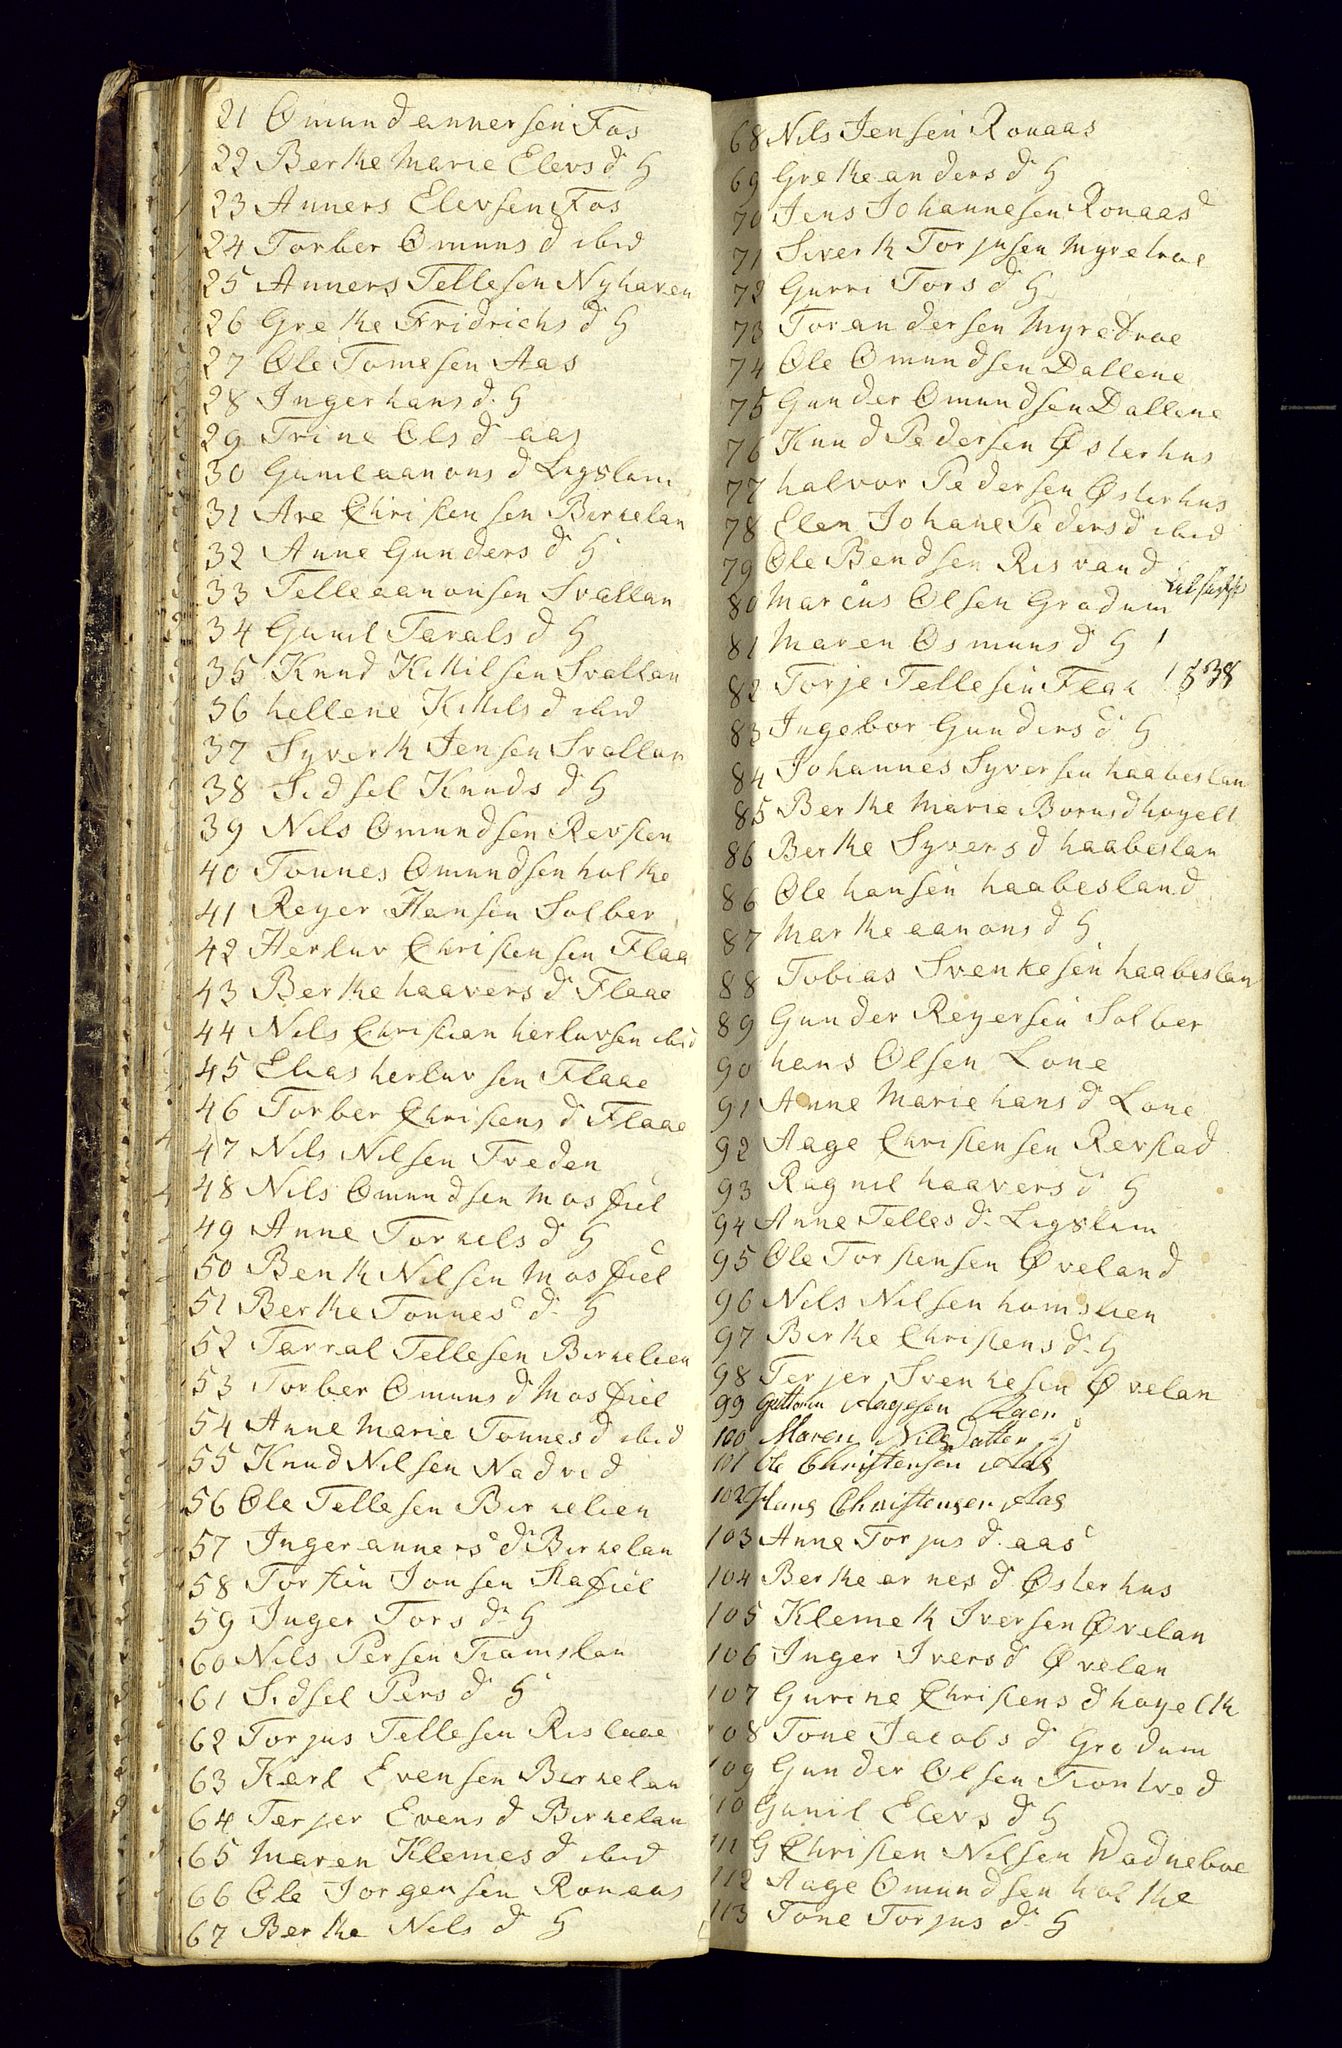 21 Omund annersen Fos
22 Berthe Marie Elevs d H
23 Anners Elevsen Fos
24 Torber Omuns d ibid
25 Anners Tellesen Nyhaven
26 Grethe Fridrichs d H
27 Ole Tomesen Aas
28 Inger hans d. H
29 Trine Ols d aas
30 Gunil aanons d Ligslum
31 Are Christensen Birkelan
32 Anne Gunders d H
33 Telle aanonsen Svallan
34 Gunil Tarals d H
35 Knud Kittilsen Svallan
36 hellene Kittils d ibid
37 Syvert Jensen Svallan
38 Sidsel Knuds d H
39 Nils Omundsen Revsten
40 Tonnes Omundsen holthe
41 Reyer Hansen Solber
42 Herluv Christensen Flaa
43 Berthe haavers d Flaae
44 Nils Christian herluvsen ibid
45 Elias herluvsen Flaae
46 Torber Christens d Flaae
47 Nils Nilsen Treden
48 Nils Omundsen Mosfiel
49 Anne Torkels d H
50 Bent Nilsen Mosfiel
51 Berthe Tonnes d. H
52 Tarral Tellesen Birkelien
53 Torber Omuns d Mosfiel
54 Anne Marie Tonnes d ibid
55 Knud Nilsen Nadved
56 Ole Tellesen Birkelien
57 Inger anners d Birkelan
58 Torsten Jonsen Stafiel
59 Inger Tors d H
60 Nils Persen Tiomslan
61 Sidsel Pers d H
62 Torjus Tellesen Rislaae
63 Karl Evensen Birkelan
64 Terjer Evens d Birkelan
65 Maren Klemes d ibid
66 Ole Jorgensen Ronaas
67 Berthe Nils d H
68 Nils Jensen Ronaas
69 Grethe anders d H
70 Jens Johannesen Ronaas
71 Sivert Torjusen Myretroe
72 Gurri Tors d H
73 Tor andersen Myretroe
74 Ole Omundsen Dallene
75 Gunder Omundsen Dallene
76 Knud Pedersen Østerhus
77 halvor Pedersen Østerhus
78 Elen Johane Peders d ibid
79 Ole Bendsen Risvand
80 Marcus Olsen Grodum
81 Maren Osmuns d H
82 Torje Tellesen Flak 1838
83 Ingebor Gunders d H
84 Johannes Syversen haabeslan
85 Berthe Marie Borus d hoyelt
86 Berthe Syvers d haabeslan
86 Ole hansen haabesland
87 Marthe aanons d H
88 Tobias Svenkesen haabeslan
89 Gunder Reyersen Solber
90 hans Olsen Lone
91 Anne Marie hans d Lone
92 Aage Christensen Revstad
93 Ragnil haavers d H
94 Anne Telles d. Ligslum
95 Ole Torstensen Øveland
96 Nils Nilsen homslien
97 Birthe Christens d. H
98 Terjer Svenkesen Øvelan
99 Guttorm Aagesen
100 Maren Nilsdatter
101 Ole Christensen Aas
102 Hans Christensen Aas
103 Anne Torjus d. aas
104 Berthe arnes d. Østerhus
105 Klemet Iversen Øvelan
106 Inger Ivers d Øvelan
107 Gurine Christens d hoyelt
108 Tone Jacobs d. Grodum
109 Gunder Olsen Tiontved
110 Gunil Elevs d H
111 G Christen Nilsen Wadneboe
112 Aage Omundsen holthe
113 Tone Torjus d. H